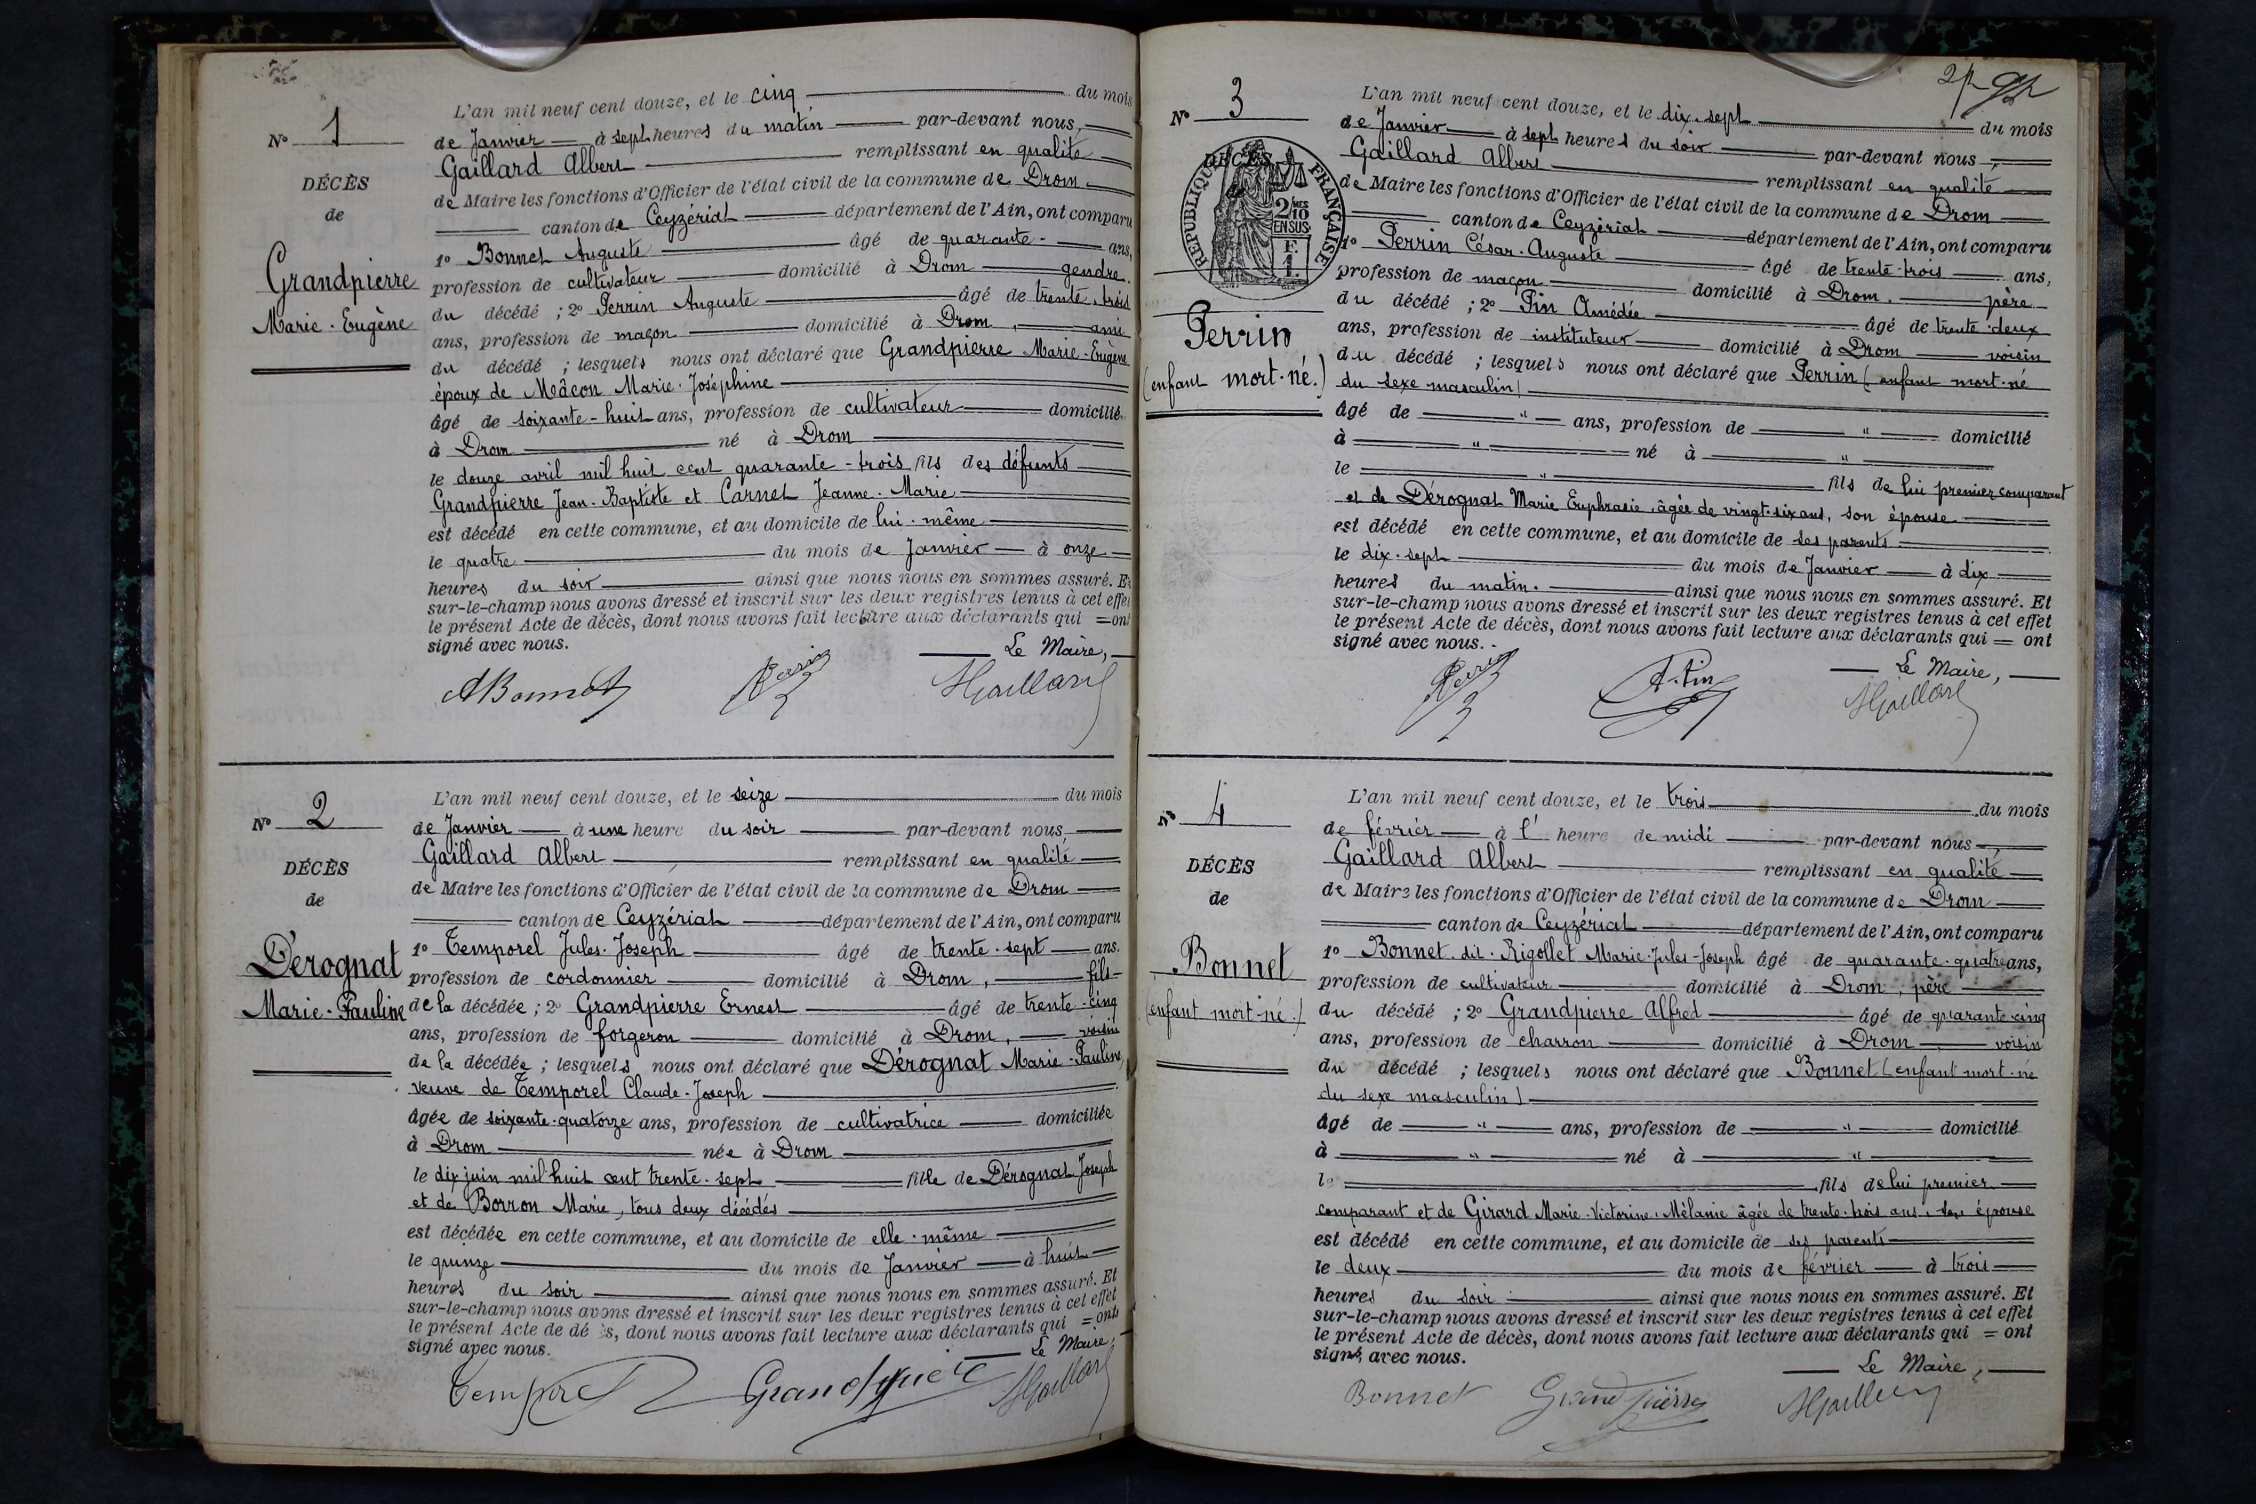 N° 1
DÉCÈS
de
Grandpierre
Marie-Eugène
L'an mil neuf cent douze, et le cinq du mois
de Janvier à sept heures du matin par-devant nous,
Gaillard Albert remplissant en qualité
de Maire les fonctions d'Officier de l'état civil de la commune de Drom
canton de Ceyzériat département de l'Ain, ont comparu
1° Bonnet Auguste âgé de quarante- ans,
profession de cultivateur domicilié à Drom gendre
du décédé ; 2° Perrin Auguste âgé de trente-trois
ans, profession de maçon domicilié à Drom, ami
du décédé ; lesquels nous ont déclaré que Grandpierre Marie-Eugène
époux de Mâcon Marie-Joséphine
âgé de soixante-huit ans, profession de cultivateur domicilié
à Drom né à Drom
le douze avril mil huit cent quarante-trois fils des défunts
Grandpierre Jean-Baptiste et Carnet Jeanne-Marie
est décédé en cette commune, et au domicile de lui-même
le quatre du mois de Janvier à onze
heures du soir ainsi que nous nous en sommes assuré. Et
sur-le-champ nous avons dressé et inscrit sur les deux registres tenus à cet effet
le présent Acte de décès, dont nous avons fait lecture aux déclarants qui = ont
signé avec nous.
Le Maire,
ABonnet Perrin AGaillard
N° 2
DÉCÈS
de
Dérognat
Marie-Pauline
L'an mil neuf cent douze, et le seize du mois
de Janvier à une heure du soir par-devant nous
Gaillard Albert remplissant en qualité
de Maire les fonctions d'Officier de l'état civil de la commune de Drom
canton de Ceyzériat département de l'Ain, ont comparu
1° Temporel Jules-Joseph âgé de trente-sept ans.
profession de cordonnier domicilié à Drom, fils
de la décédée ; 2° Grandpierre Ernest âgé de trente-cinq
ans, profession de forgeron domicilié à Drom, voisin
de la décédée ; lesquels nous ont déclaré que Dérognat Marie-Pauline,
veuve de Temporel Claude-Joseph
âgée de soixante-quatorze ans, profession de cultivatrice domiciliée
à Drom née à Drom
le dix juin mil huit cent trente-sept fille de Dérognat Joseph
et de Borron Marie, tous deux décédés
est décédée en cette commune, et au domicile de elle-même
le quinze du mois de Janvier à huit
heures du soir ainsi que nous nous en sommes assuré. Et
sur-le-champ nous avons dressé et inscrit sur les deux registres tenus à cet effet
le présent Acte de dé s, dont nous avons fait lecture aux déclarants qui = ont
signé avec nous.
Le Maire,
Temporel Grandpierre AGaillard
N° 3
DÉCÈS
RÉPUBLIQUE FRANÇAISE
2/10 MES
EN SUS
F.
1.
Perrin
(enfant mort-né.)
L'an mil neuf cent douze, et le dix-sept du mois
de Janvier à sept heures du soir par-devant nous,
Gaillard Albert remplissant en qualité
de Maire les fonctions d'Officier de l'état civil de la commune de Drom
canton de Ceyzériat département de l'Ain, ont comparu
1° Perrin César-Auguste âgé de trente-trois ans,
profession de maçon domicilié à Drom, père
du décédé ; 2° Pin Amédée âgé de trente-deux
ans, profession de instituteur domicilié à Drom voisin
du décédé ; lesquels nous ont déclaré que Perrin (enfant mort-né
du sexe masculin)
âgé de " ans, profession de " domicilié
à " né à "
le " fils de lui premier comparant
et de Dérognat Marie Euphrasie, âgée de vingt-six ans, son épouse
est décédé en cette commune, et au domicile de ses parents
le dix-sept du mois de Janvier à dix
heures du matin. ainsi que nous nous en sommes assuré. Et
sur-le-champ nous avons dressé et inscrit sur les deux registres tenus à cet effet
le présent Acte de décès, dont nous avons fait lecture aux déclarants qui = ont
signé avec nous.
Le Maire,
Perrin A. Pin AGaillard
N° 4
DÉCÈS
de
Bonnet
(enfant mort-né.)
L'an mil neuf cent douze, et le trois du mois
de février à l' heure de midi par-devant nous,
Gaillard Albert remplissant en qualité
de Maire les fonctions d'Officier de l'état civil de la commune de Drom
canton de Ceyzériat département de l'Ain, ont comparu
1° Bonnet dit Rigollet Marie-Jules-Joseph âgé de quarante-quatre ans,
profession de cultivateur domicilié à Drom, père
du décédé ; 2° Grandpierre Alfred âgé de quarante-cinq
ans, profession de charron domicilié à Drom voisin
du décédé ; lesquels nous ont déclaré que Bonnet (enfant mort-né
du sexe masculin)
âgé de " ans, profession de " domicilié
à " né à "
le fils de lui premier
comparant et de Girard Marie-Victorine-Mélanie âgée de trente-trois ans, son épouse
est décédé en cette commune, et au domicile de ses parents
le deux du mois de février à trois
heures du soir ainsi que nous nous en sommes assuré. Et
sur-le-champ nous avons dressé et inscrit sur les deux registres tenus à cet effet
le présent Acte de décès, dont nous avons fait lecture aux déclarants qui = ont
signé avec nous.
Le Maire,
Bonnet Grandpierre AGaillard